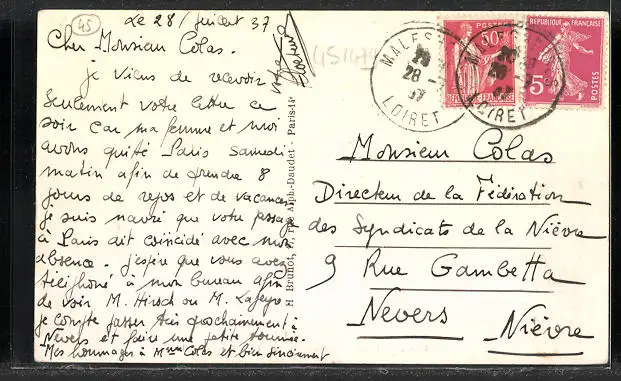 45
Le 28 Juillet 37
Cher Monsieur Colas.
je viens de recevoir
seulement votre lettre ce
soir car ma femme et moi
avons quitté Paris samedi
matin afin de prendre 8
jours de repos et de vacances
je suis navré que votre passage
à Paris ait coincidé avec mon
absence. j'espère que vous avez
téléphoné à mon bureau afin
de voir M. Hirsch ou M.
je compte passer très prochainement à
Nevers et faire une petite tournée.
Mes hommages à Mme Colas et bien sincèrement
votre
H Brunot, rue Alph.-Daudet - Paris-14e
MALESH
28
37
LOIRET
POSTES
50c
REPUBLIQUE FRANÇAISE
LOIRET
REPUBLIQUE FRANÇAISE
5c
POSTES
Monsieur Colas
Directeur de la Fédération
des Syndicats de la Nièvre
9 Rue Gambetta
Nevers
Nièvre